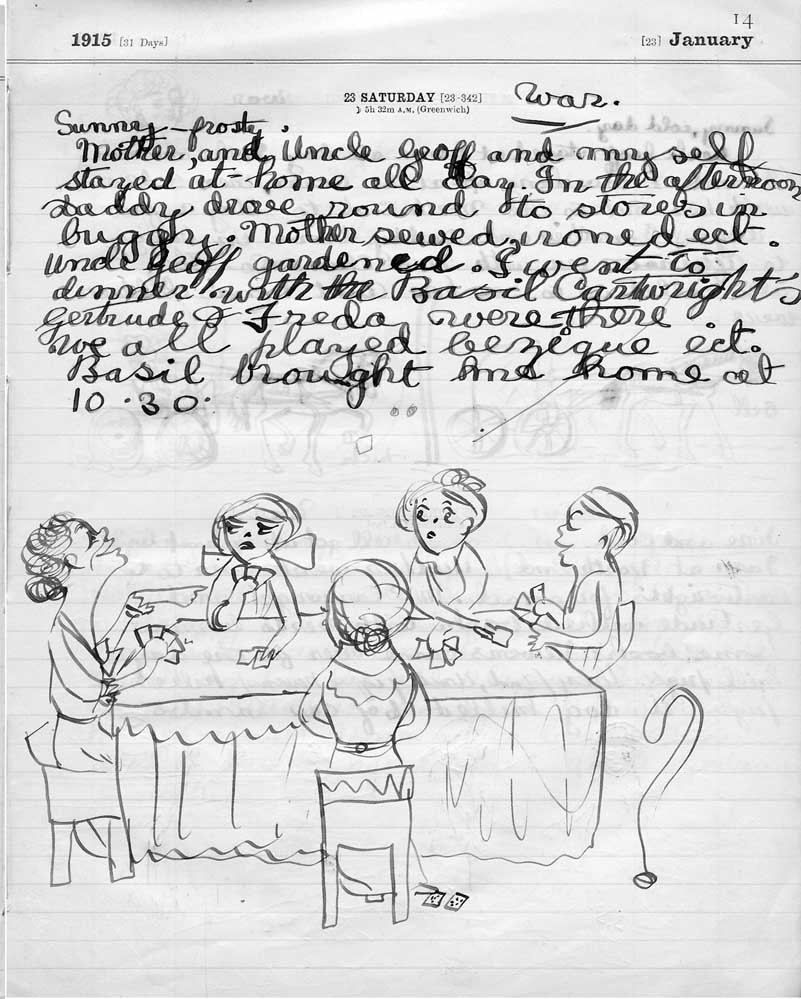 14
1915 [31 Days] [23] January
23 SATURDAY [23-342] War.
☽ 5h 32m A.M. (Greenwich)
Sunny - frosty.
Mother, and, Uncle Geoff and my self
stayed at-home all day. In the afternoon
daddy drove round to stores in
buggy. Mother sewed, ironed ect.
Uncle Geoff gardened. I went to
dinner with the Basil Cartwright's
Gertrude & Freda were there
we all played bezique ect.
Basil brought me home at
10.30.